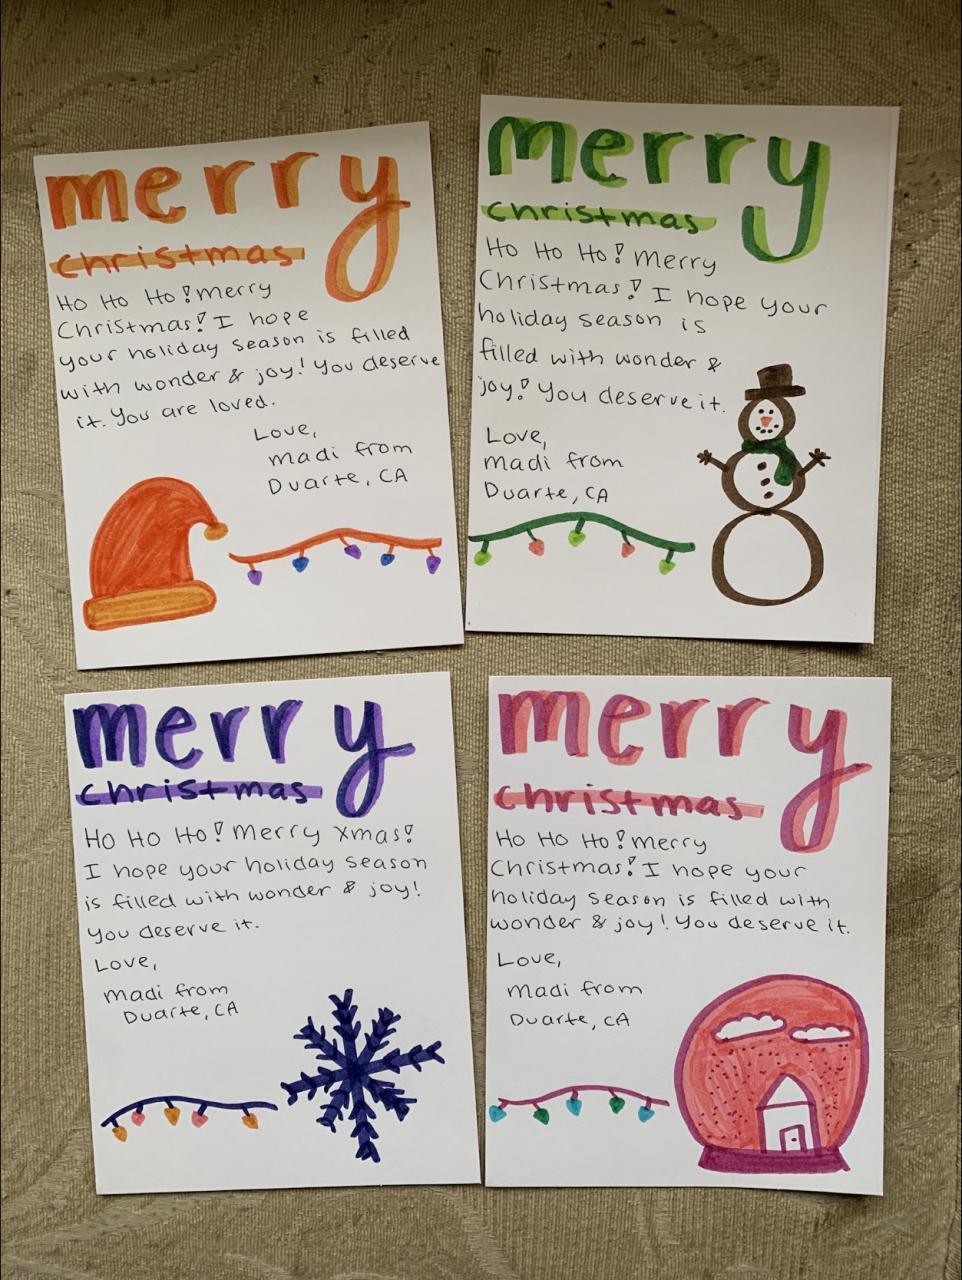 merry
christmas
Ho Ho Ho! merry
Christmas! I hope
your holiday season is filled
with wonder & joy! You deserve
it. You are loved.
Love,
madi from
Duarte, CA
merry
christmas
Ho Ho Ho! merry
Christmas! I hope your
holiday season is
filled with wonder &
joy! You deserve it.
Love,
madi from
Duarte, CA
merry
christmas
Ho Ho Ho! merry xmas!
I hope your holiday season
is filled with wonder & joy!
you deserve it.
Love,
madi from
Duarte, CA
merry
christmas
Ho Ho Ho! merry
Christmas! I hope your
holiday season is filled with
wonder & joy! You deserve it.
Love,
madi from
Duarte, CA